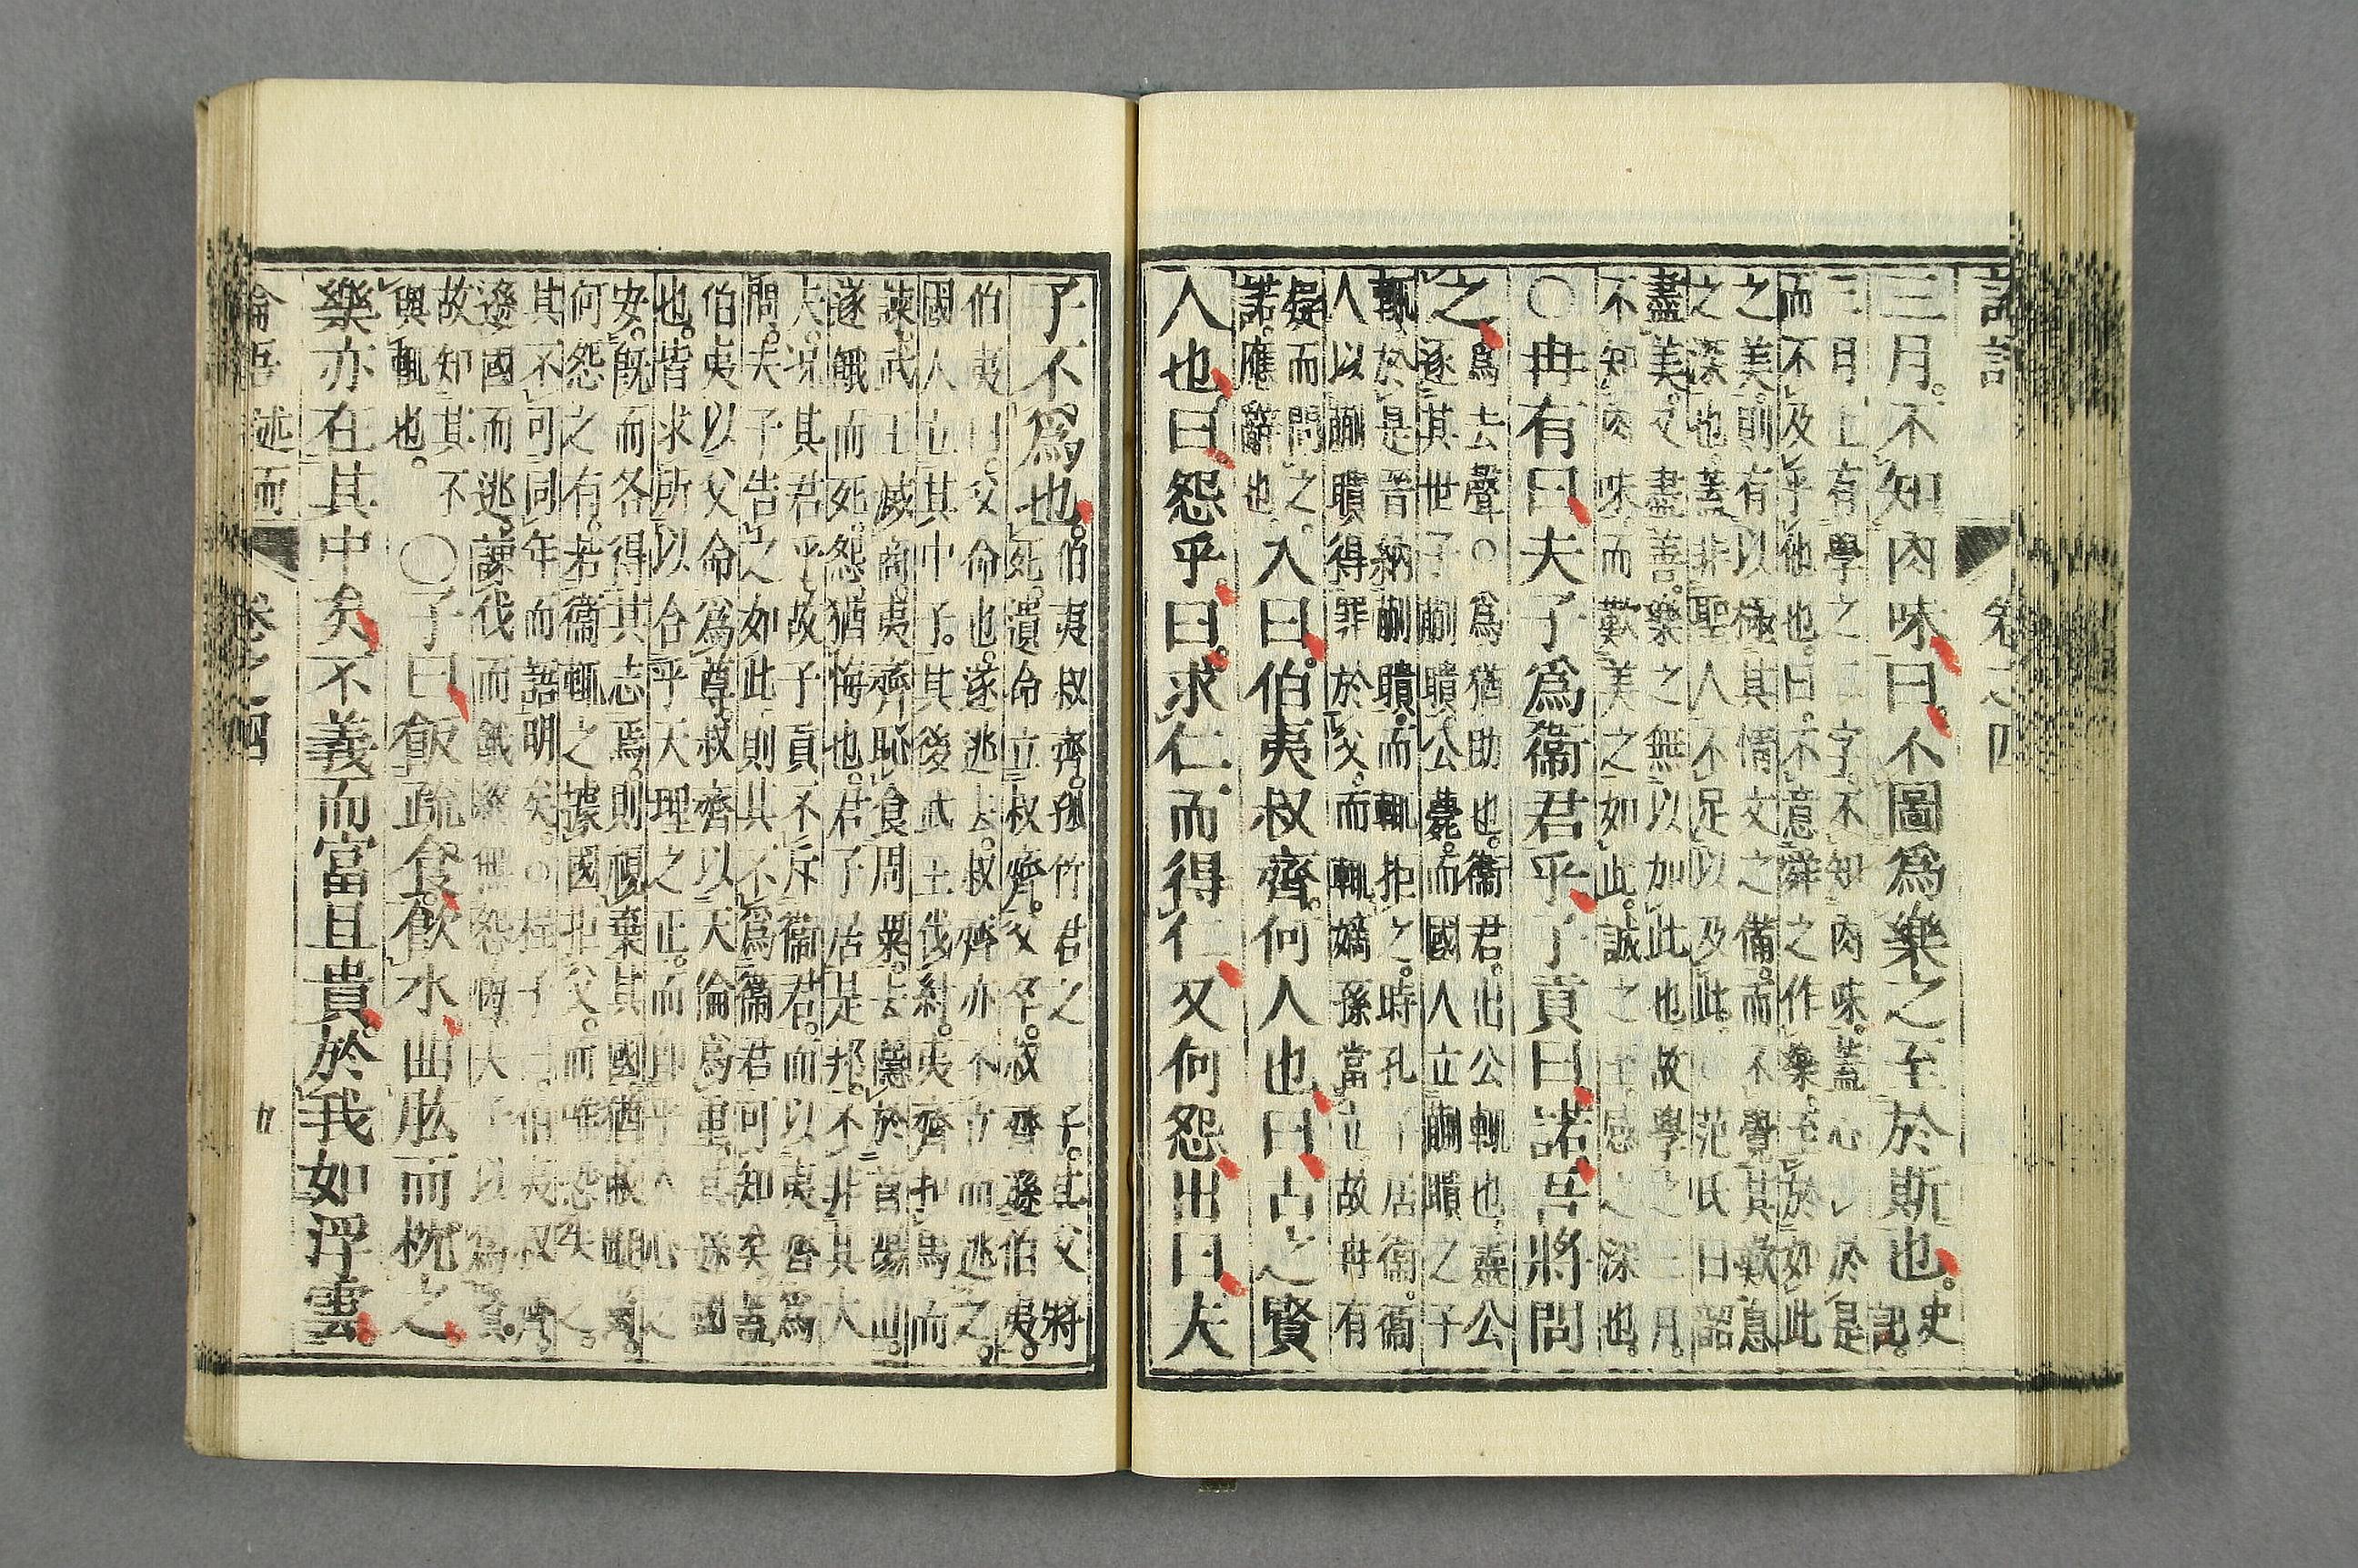 論語 卷之四
三月。不知肉味。曰。不圖爲樂之至於斯也。史記。
三月上有學之二字。不知肉味。蓋心一於是
而不及乎他也。曰。不意舜之作樂。至於如此
之美。則有以極其情文之備。而不覺其歎息
之深也。蓋非聖人不足以及此。○范氏曰韶
盡美。又盡善。樂之無以加此也故學之三月。
不知肉味。而歎美之如此。誠之至。感之深也。
○冉有曰。夫子爲衞君乎。子貢曰。諾。吾將問
之。爲去聲○爲猶助也。衞君。出公輒也。靈公
逐其世子蒯聵公薨。而國人立蒯聵之子
輒。於是晉納蒯聵。而輒拒之。時孔子居衞。衞
人以蒯聵得罪於父。而輒嫡孫當立。故冉有
疑而問之。
諾。應辭也。入曰。伯夷叔齊。何人也。曰。古之賢
人也。曰。怨乎。曰。求仁。而得仁。又何怨。出曰。夫
子不爲也。伯夷叔齊。孤竹君之子。其父將
死。遺命立叔齊。父卒。叔齊遜伯夷。
伯夷曰。父命也。遂逃去。叔齊亦不立而逃之。
國人立其中子。其後武王伐紂。夷齊扣馬而
諫。武王滅商。夷齊恥食周粟。去隱於首陽山。
遂餓而死。怨猶悔也。君子居是邦。不非其大
夫。况其君乎。故子貢不斥衞君。而以夷齊爲
問。夫子告之如此。則其不爲衞君可知矣。蓋
伯夷以父命爲尊。叔齊以天倫爲重。其遜國
也。皆求所以合乎天理之正。而即乎人心之
安。旣而各得其志焉。則視棄其國。猶敝蹝爾。
何怨之有。若衞輒之據國拒父。而唯恐失之。
其不可同年而語明矣。○程子曰。伯夷叔齊。
遜國而逃。諫伐而餓。終無怨悔。夫子以爲賢。
故知其不
與輒也。○子曰。飯疏食。飲水。曲肱而枕之。
樂亦在其中矣。不義而富且貴。於我如浮雲。
論語 述而 卷之四 九